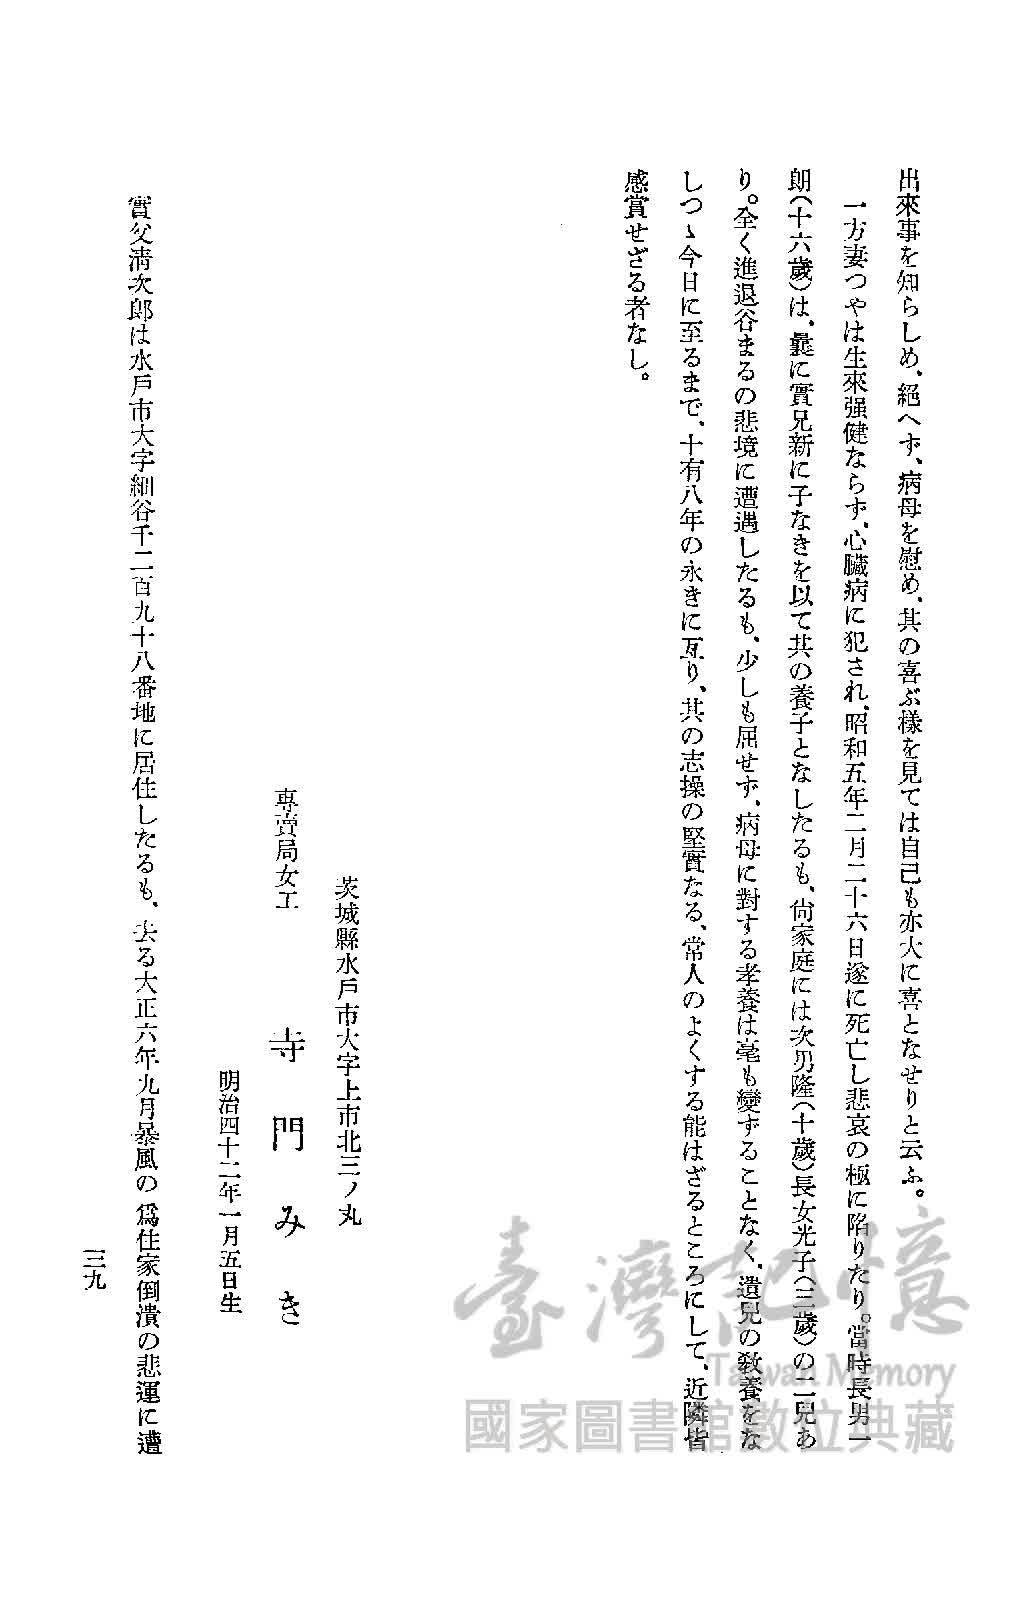 出來事を知らしめ、絕へず、病母を慰め、其の喜ぶ樣を見ては自己も亦大に喜となせりと云ふ。
一方妻つやは生來强健ならず、心臟病に犯され、昭和五年二月二十六日遂に死亡し悲哀の極に陷りたり。當時長男一
朗(十六歲)は、曩に實兄新に子なきを以て其の養子となしたるも、尙家庭には次男隆(十歲)長女光子(三歲)の二兒あ
り。全く進退谷まるの悲境に遭遇したるも、少しも屈せず、病母に對する孝養は毫も變ずることなく、遺兒の敎養をな
しつゝ今日に至るまで、十有八年の永きに亙り、其の志操の堅實なる、常人のよくする能はざるところにして、近隣皆
感賞せざる者なし。
茨城縣水戶市大字上市北三ノ丸
專賣局女工 寺門みき
明治四十二年一月五日生
實父淸次郎は水戶市大字細谷千二百九十八番地に居住したるも、去る大正六年九月暴風の爲住家倒潰の悲運に遭
三九
臺灣記憶
Taiwan Memory
國家圖書館數位典藏